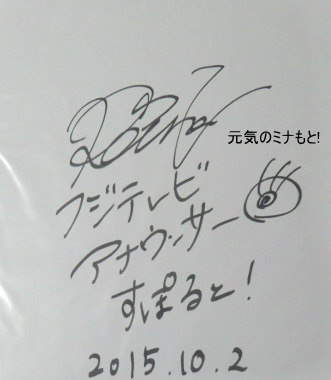 元気のミナもと!
フジテレビ
アナウンサー
すぽると!
2015.10.2